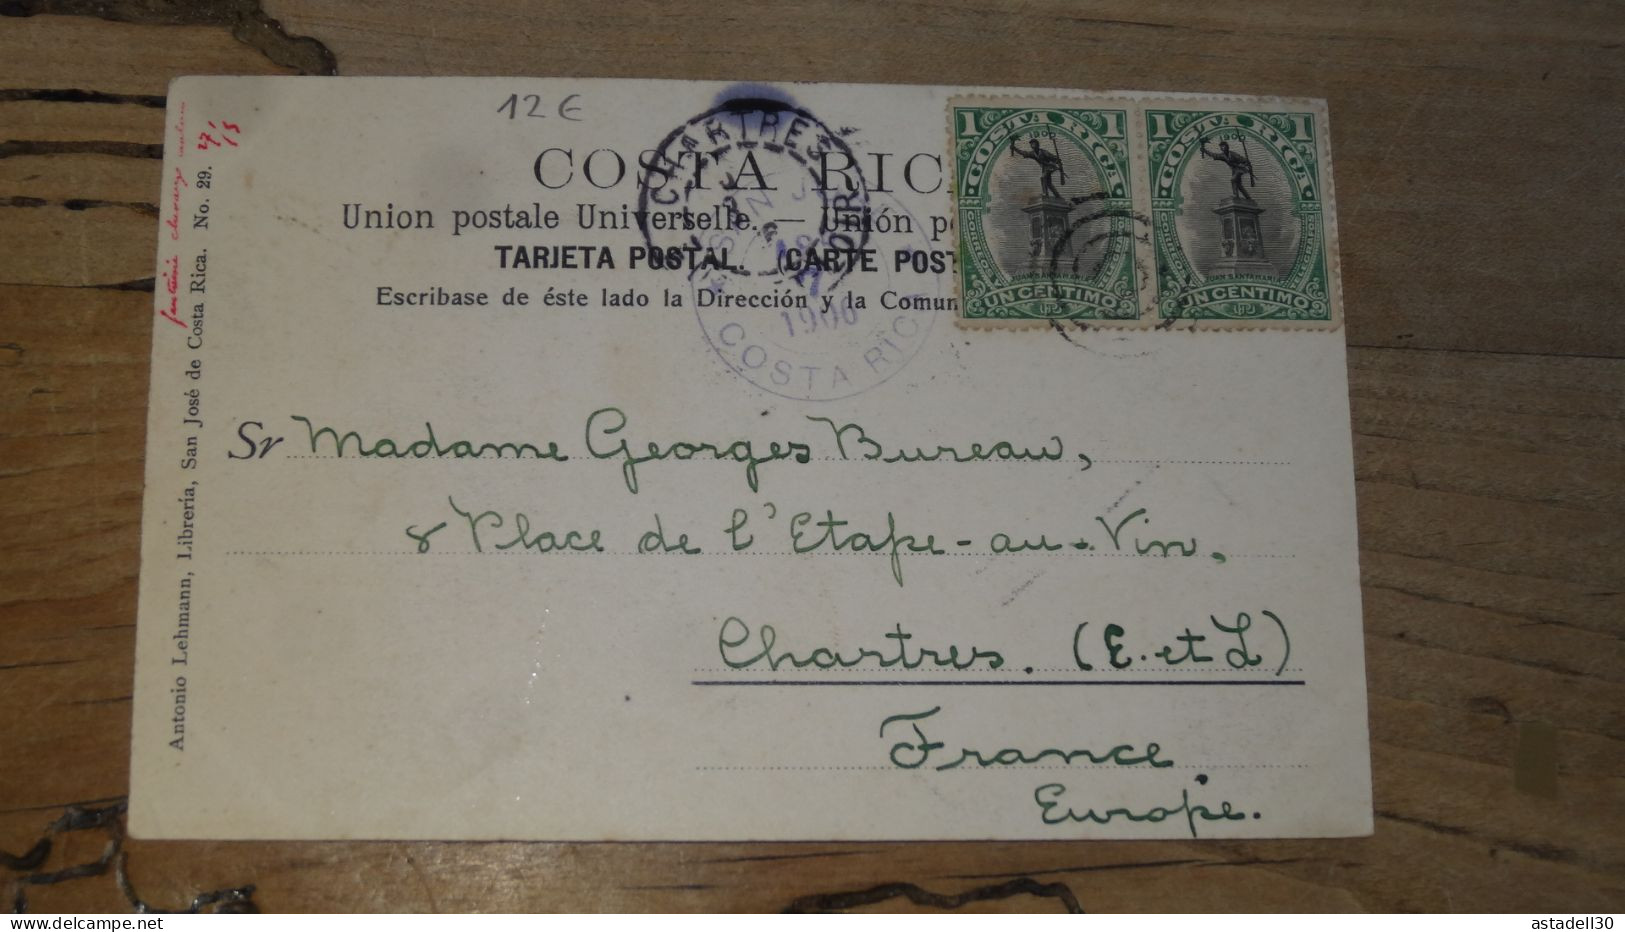 12 €
COSTA RIC
Union postale Universelle. — Unión po
TARJETA POSTAL. (CARTE POST
Escribase de éste lado la Dirección y la Comun
CHARTRES
SAN J
1906
COSTA RICA
1 COSTA RICA 1
1900
CORREOS Y TELEGRAFOS
JUAN SANTAMARIA
UN CENTIMO
1 COSTA RICA 1
1900
CORREOS Y TELEGRAFOS
JUAN SANTAMARIA
UN CENTIMO
Sr Madame Georges Bureau,
8 Place de l'Etape-au-Vin,
Chartres. (E. et L)
France
Europe.
Antonio Lehmann, Librería, San José de Costa Rica. No. 29.
astadell30